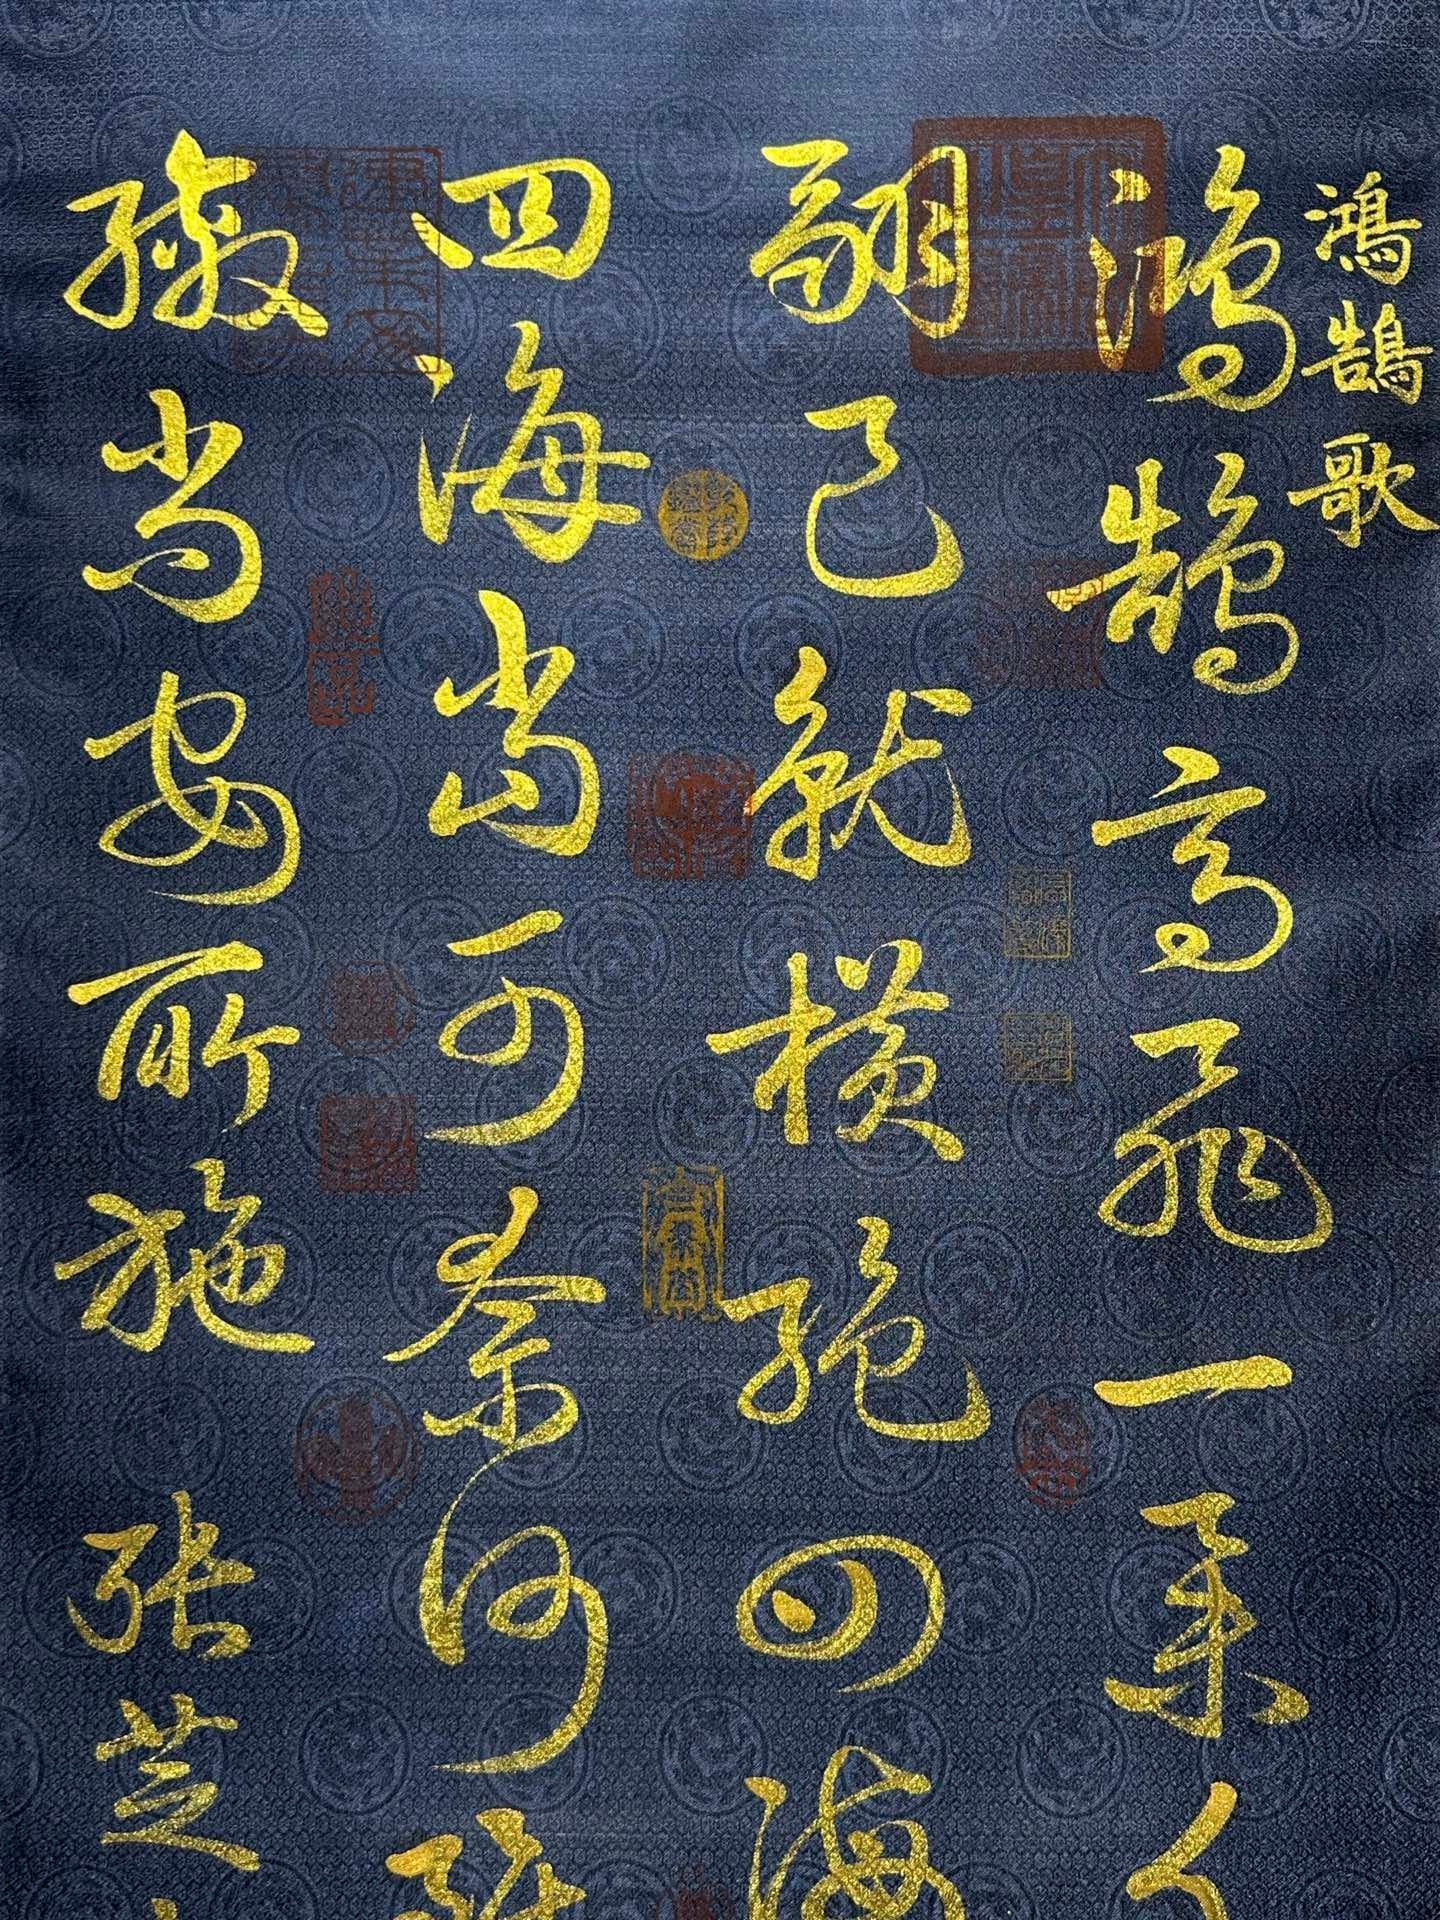 鴻鵠歌
鴻鵠高飛一舉
翮已就橫絕四海
四海當可奈何
繳尚安所施 張芝